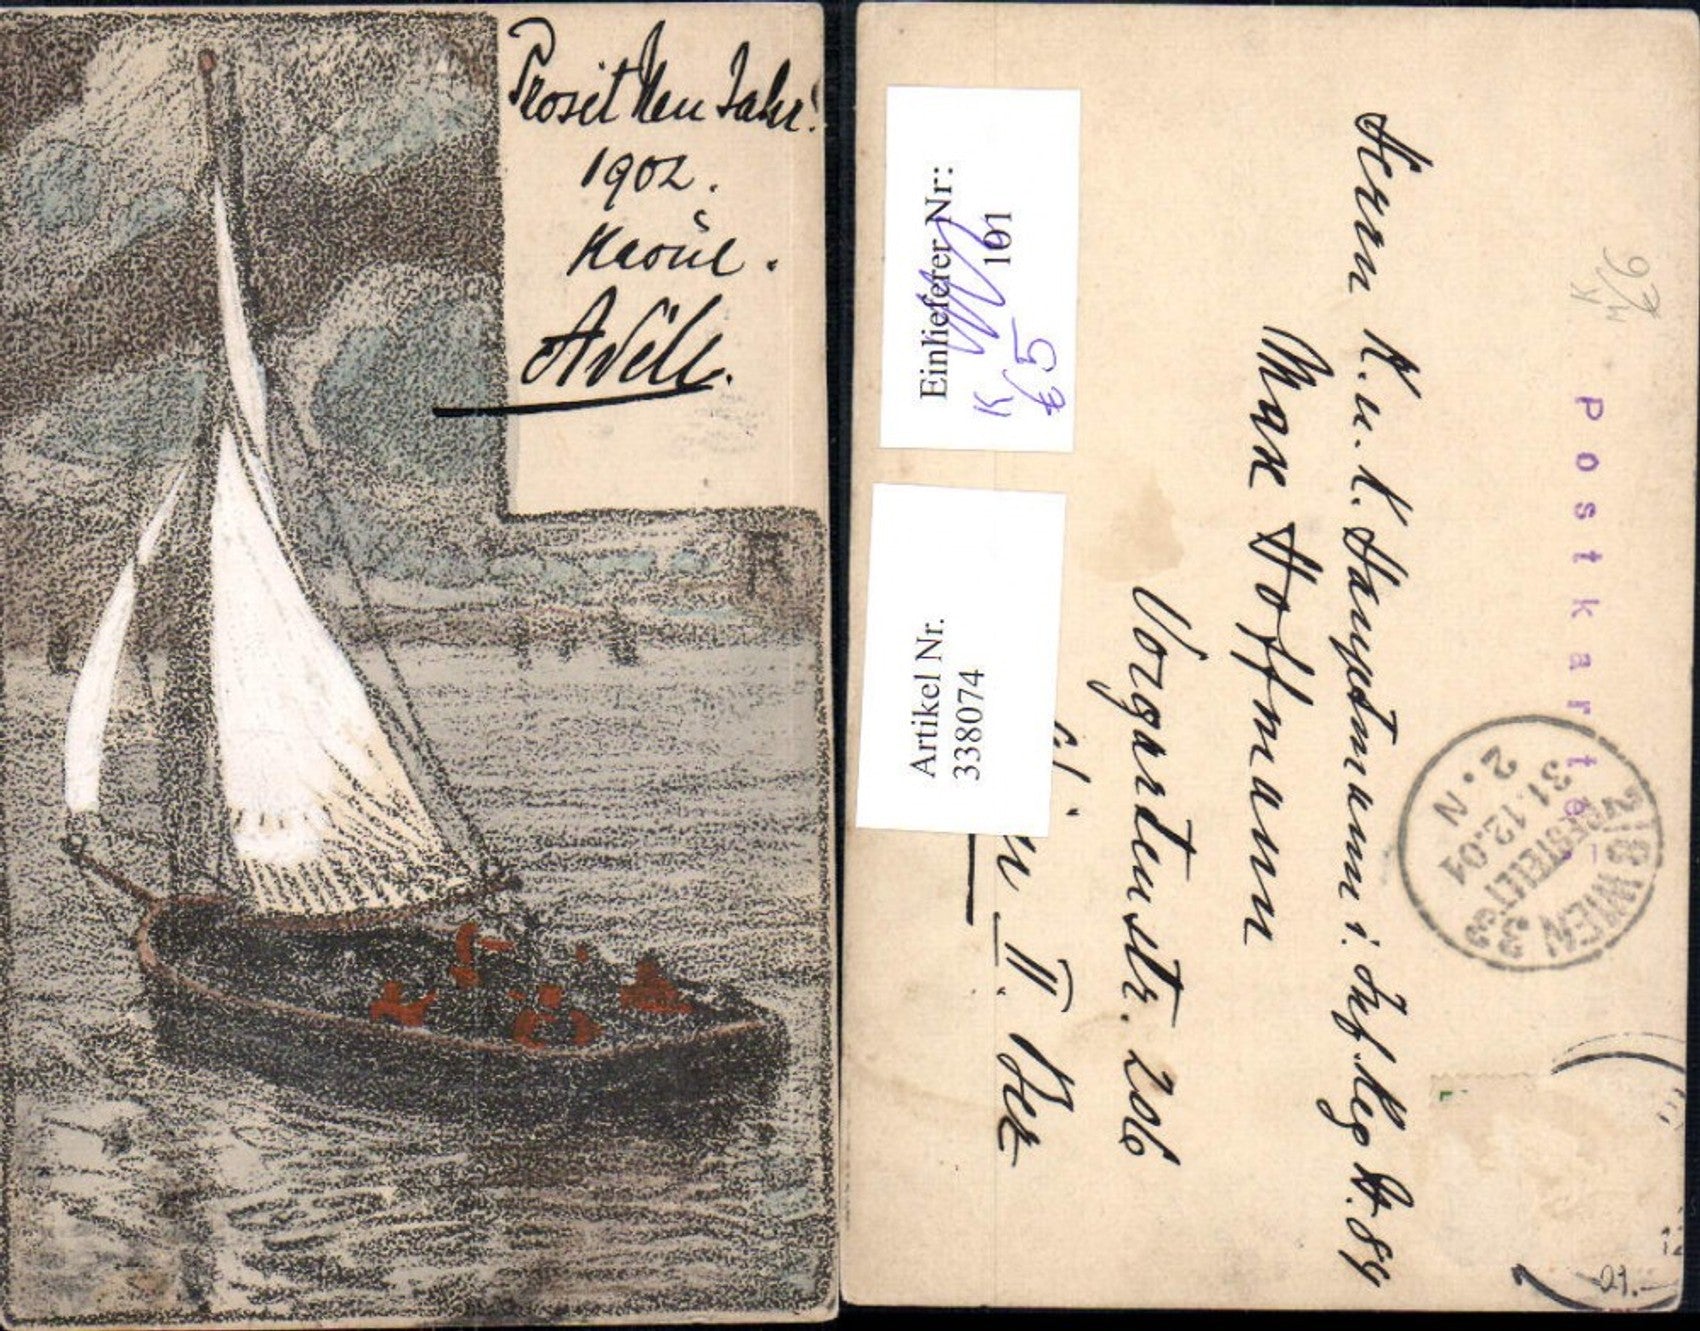 Prosit Neu Jahr!
1902.
Raoul.
Adele.
Einlieferer Nr:
101
K
€5
Artikel Nr.
338074
K
M
€6
Postkarte
Herrn K. u. K. Hauptmann i. Inf. Reg. N. 84
Max Hoffmann
Vorgartenstr. 206
Wien II. Bez
WIEN
BESTELLT
31.12.01
2.N
12
01.